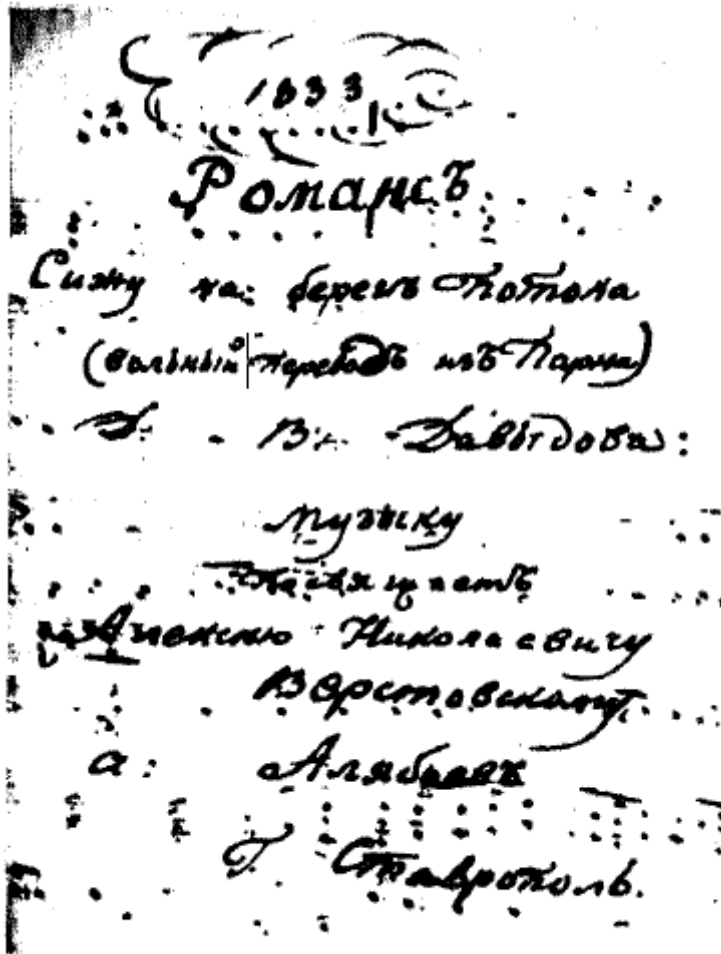 1833
Романсъ
Сижу на: берегѣ потока
(вольный переводъ изъ Парни)
Д: В: Давыдова:
музыку
посвящаетъ
Алексѣю Николаевичу
Верстовскому.
А: Алябьевъ
Г. Ставрополь.